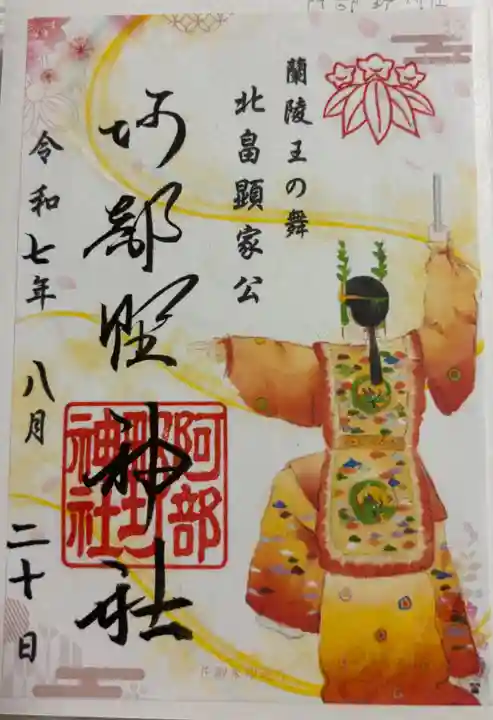 蘭陵王の舞
北畠顕家公
阿部野神社
阿部野神社
令和七年 八月 二十日